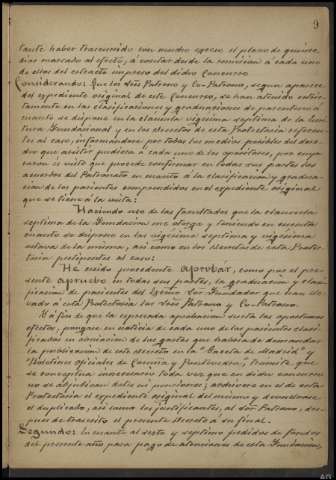 9
tante haber trascurrido con mucho esceso el plazo de quince
dias marcado al efecto, á contar desde la remision á cada uno
de ellos del estracto impreso del dicho Concurso.
Considerando: Que los Sres Patrono y Co-Patrono, segun aparece
del expediente original de este Concurso, se han atenido estric-
tamente en las clasificaciones y graduaciones de parentesco á
cuanto se dispone en la clausula vigesima septima de la Escri-
tura fundacional y en los decretos de esta Protectoría referen-
tes al caso, informandose por todos los medios posibles del dere-
cho que asistir pudiera á cada uno de los opositores, por cuya
razon é visto que procede confirmar en todas sus partes los
acuerdos del Patronato en cuanto á la clasificacion y gradua-
cion de los parientes comprendidos en el expediente original
que se tiene á la vista:
Haciendo uso de las facultades que la clausula
septima de la Fundacion me otorga y teniendo en cuenta
cuanto se dispone en las vigesima septima y vigesima
octava de la misma, asi como en los decretos de esta Protec-
toría pertinentes al caso:
He creido procedente aprobar, como por el pre-
sente apruebo en todas sus partes, la graduacion y clasi-
ficacion de parientes del Señor Fundador que han ele-
vado á esta Protectoría los Sres Patrono y Co-Patrono.
Y á fin de que la espresada aprobacion surta los oportunos
efectos, pongase en noticia de cada uno de los parientes clasi-
ficados en evitacion de los gastos que habria de demandar
la publicacion de este decreto en la "Gaceta de Madrid" y
"Boletines oficiales de Coruña y Pontevedra", tramite que
se conceptúa innecesario toda vez que en dicho concurso
no se adjudican dotes ni pensiones; archivese en el de esta
Protectoría el expediente original del mismo y devuelvase
el duplicado, asi como los justificantes, al Sor Patrono, des-
pues de trascrito el presente decreto á su final.
Segundo: En cuanto al sesto y septimo pedidos de fondos
del presente año para pago de atenciones de esta Fundacion,